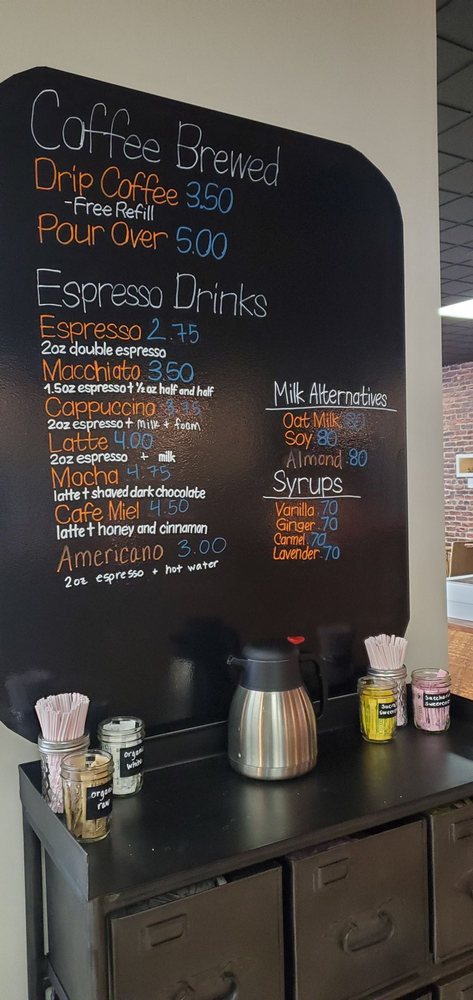 Coffee Brewed
Drip Coffee 3.50
-Free Refill
Pour Over 5.00
Espresso Drinks
Espresso 2.75
2oz double espresso
Macchiato 3.50
1.5oz espresso + ½ oz half and half
Cappuccino 3.75
2oz espresso + milk + foam
Latte 4.00
2oz espresso + milk
Mocha 4.75
latte + shaved dark chocolate
Cafe Miel 4.50
latte + honey and cinnaman
Americano 3.00
2oz espresso + hot water
Milk Alternatives
Oat Milk .80
Soy .80
Almond .80
Syrups
Vanilla .70
Ginger .70
Carmel .70
Lavender .70
organic
raw
organic
white